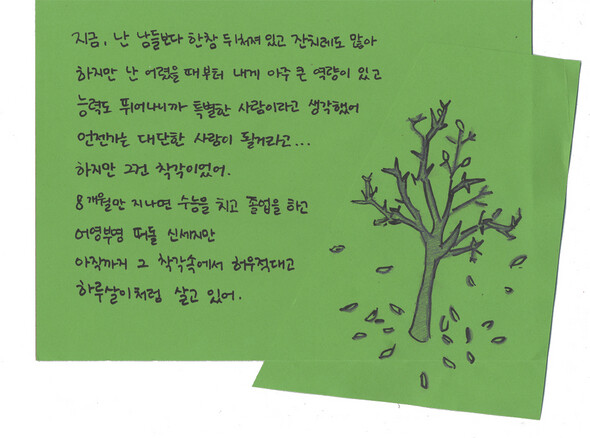 지금, 난 남들보다 한참 뒤처져 있고 잔치레도 많아
하지만 난 어렸을 때부터 내게 아주 큰 역량이 있고
능력도 뛰어나니까 특별한 사람이라고 생각했어
언젠가는 대단한 사람이 될거라고...
하지만 그건 착각이었어.
8개월만 지나면 수능을 치고 졸업을 하고
어영부영 떠돌 신세지만
아직까지 그 착각속에서 허우적대고
하루살이처럼 살고 있어.